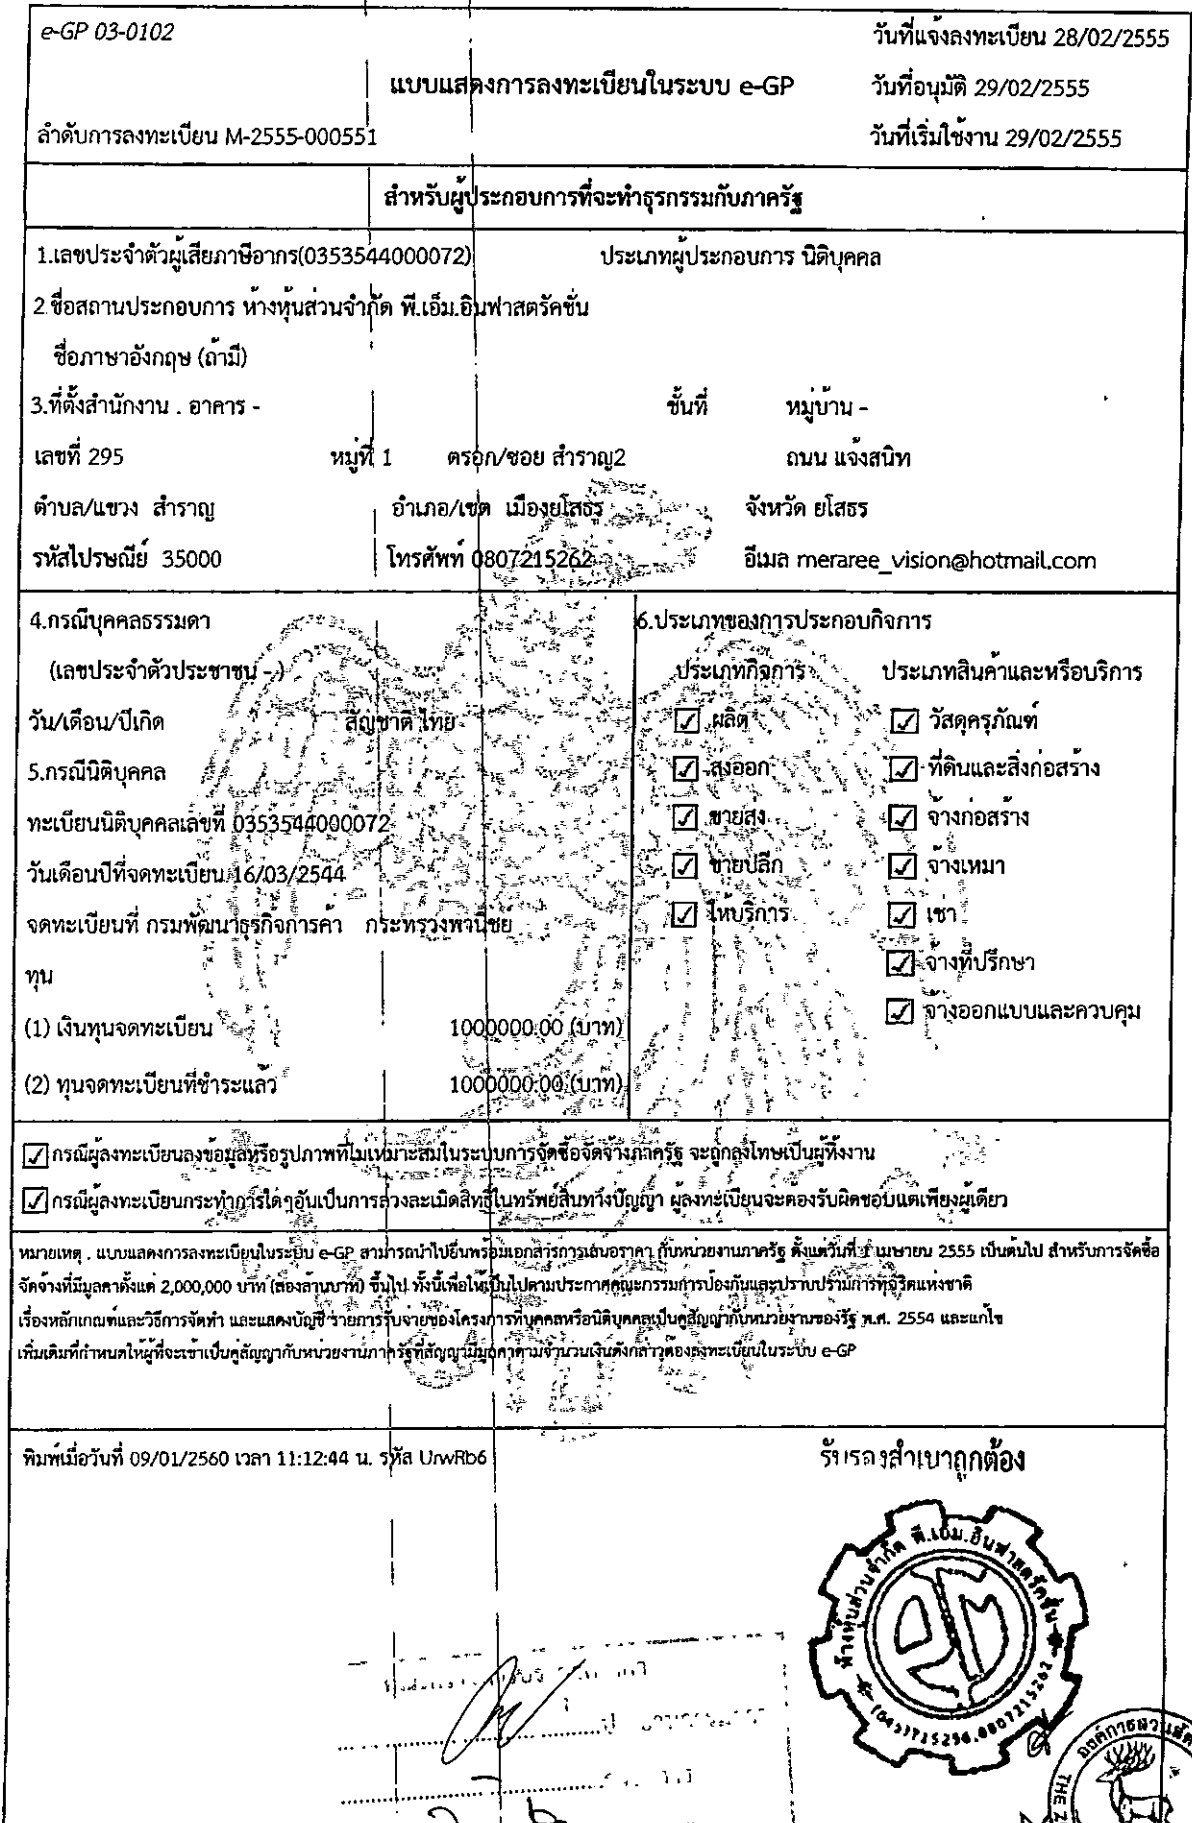 e-GP 03-0102
วันที่แจ้งลงทะเบียน 28/02/2555
แบบแสดงการลงทะเบียนในระบบ e-GP
วันที่อนุมัติ 29/02/2555
ลำดับการลงทะเบียน M-2555-000551
วันที่เริ่มใช้งาน 29/02/2555
สำหรับผู้ประกอบการที่จะทำธุรกรรมกับภาครัฐ
1.เลขประจำตัวผู้เสียภาษีอากร(0353544000072) ประเภทผู้ประกอบการ นิติบุคคล
2.ชื่อสถานประกอบการ ห้างหุ้นส่วนจำกัด พี.เอ็ม.อินฟาสตรัคชั่น
ชื่อภาษาอังกฤษ (ถ้ามี)
3.ที่ตั้งสำนักงาน . อาคาร - ชั้นที่ หมู่บ้าน -
เลขที่ 295 หมู่ที่ 1 ตรอก/ซอย สำราญ2 ถนน แจ้งสนิท
ตำบล/แขวง สำราญ อำเภอ/เขต เมืองยโสธร จังหวัด ยโสธร
รหัสไปรษณีย์ 35000 โทรศัพท์ 0807215262 อีเมล meraree_vision@hotmail.com
4.กรณีบุคคลธรรมดา
(เลขประจำตัวประชาชน -)
วัน/เดือน/ปีเกิด สัญชาติ ไทย
5.กรณีนิติบุคคล
ทะเบียนนิติบุคคลเลขที่ 0353544000072
วันเดือนปีที่จดทะเบียน 16/03/2544
จดทะเบียนที่ กรมพัฒนาธุรกิจการค้า กระทรวงพาณิชย์
ทุน
(1) เงินทุนจดทะเบียน 1000000.00 (บาท)
(2) ทุนจดทะเบียนที่ชำระแล้ว 1000000.00 (บาท)
6.ประเภทของการประกอบกิจการ
ประเภทกิจการ ประเภทสินค้าและหรือบริการ
☑ ผลิต ☑ วัสดุครุภัณฑ์
☑ ส่งออก ☑ ที่ดินและสิ่งก่อสร้าง
☑ ขายส่ง ☑ จ้างก่อสร้าง
☑ ขายปลีก ☑ จ้างเหมา
☑ ให้บริการ ☑ เช่า
☑ จ้างที่ปรึกษา
☑ จ้างออกแบบและควบคุม
☑ กรณีผู้ลงทะเบียนลงข้อมูลหรือรูปภาพที่ไม่เหมาะสมในระบบการจัดซื้อจัดจ้างภาครัฐ จะถูกลงโทษเป็นผู้ทิ้งงาน
☑ กรณีผู้ลงทะเบียนกระทำการใดๆอันเป็นการล่วงละเมิดสิทธิ์ในทรัพย์สินทางปัญญา ผู้ลงทะเบียนจะต้องรับผิดชอบแต่เพียงผู้เดียว
หมายเหตุ . แบบแสดงการลงทะเบียนในระบบ e-GP สามารถนำไปยื่นพร้อมเอกสารการเสนอราคา กับหน่วยงานภาครัฐ ตั้งแต่วันที่ 1 เมษายน 2555 เป็นต้นไป สำหรับการจัดซื้อ
จัดจ้างที่มีมูลค่าตั้งแต่ 2,000,000 บาท (สองล้านบาท) ขึ้นไป ทั้งนี้เพื่อให้เป็นไปตามประกาศคณะกรรมการป้องกันและปราบปรามการทุจริตแห่งชาติ
เรื่องหลักเกณฑ์และวิธีการจัดทำ และแสดงบัญชี รายการรับจ่ายของโครงการที่บุคคลหรือนิติบุคคลเป็นคู่สัญญากับหน่วยงานของรัฐ พ.ศ. 2554 และแก้ไข
เพิ่มเติมที่กำหนดให้ผู้ที่จะเข้าเป็นคู่สัญญากับหน่วยงานภาครัฐที่สัญญามีมูลค่าตามจำนวนเงินดังกล่าวต้องลงทะเบียนในระบบ e-GP
พิมพ์เมื่อวันที่ 09/01/2560 เวลา 11:12:44 น. รหัส UrwRb6
รับรองสำเนาถูกต้อง
ห้างหุ้นส่วนจำกัด พี.เอ็ม.อินฟาสตรัคชั่น
(045)715256,0807215262
องค์การสวนสัตว์
THE